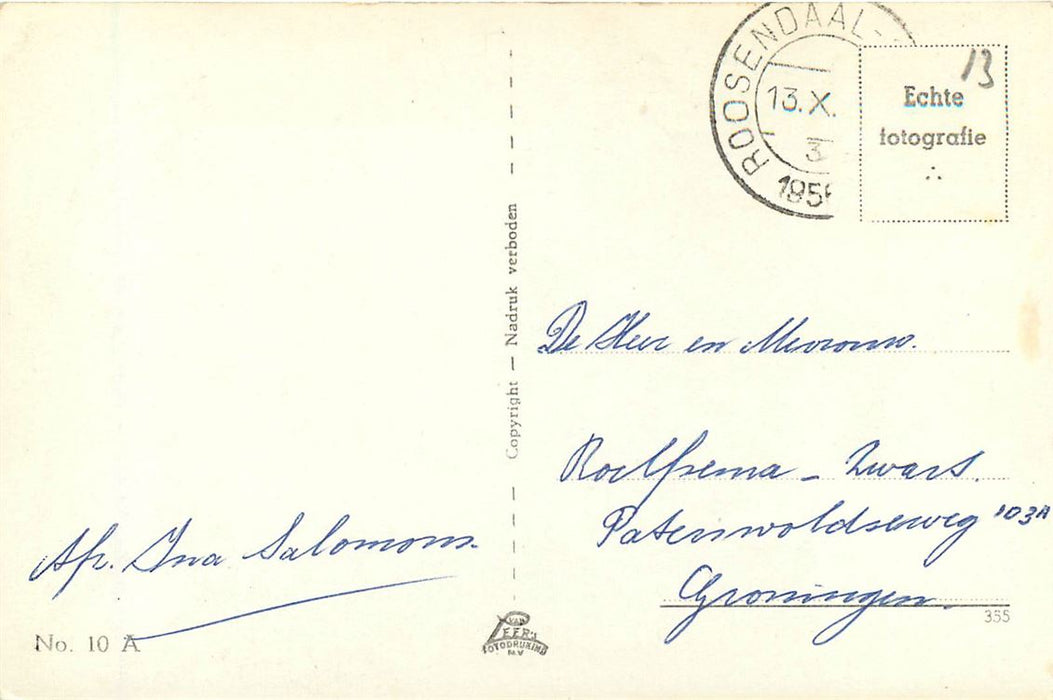 ROOSENDAAL
13.X.
3
195
13
Echte
fotografie
Copyright — Nadruk verboden
De Heer en Mevrouw.
Roelfsema - Zwart.
Paterswoldseweg 103A
Groningen.
Afz. Ina Salomons.
No. 10 A
VAN
LEER'S
FOTODRUKIND
N.V.
355